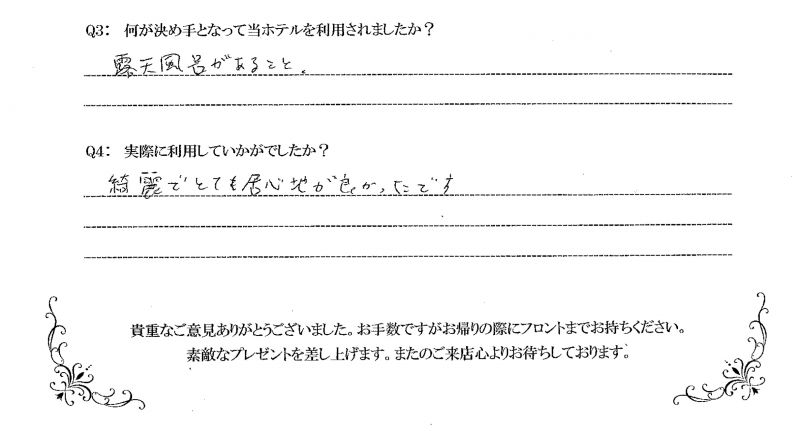 Q3： 何が決め手となって当ホテルを利用されましたか？
露天風呂があること。
Q4： 実際に利用していかがでしたか？
綺麗でとても居心地が良かったです
貴重なご意見ありがとうございました。お手数ですがお帰りの際にフロントまでお持ちください。
素敵なプレゼントを差し上げます。またのご来店心よりお待ちしております。